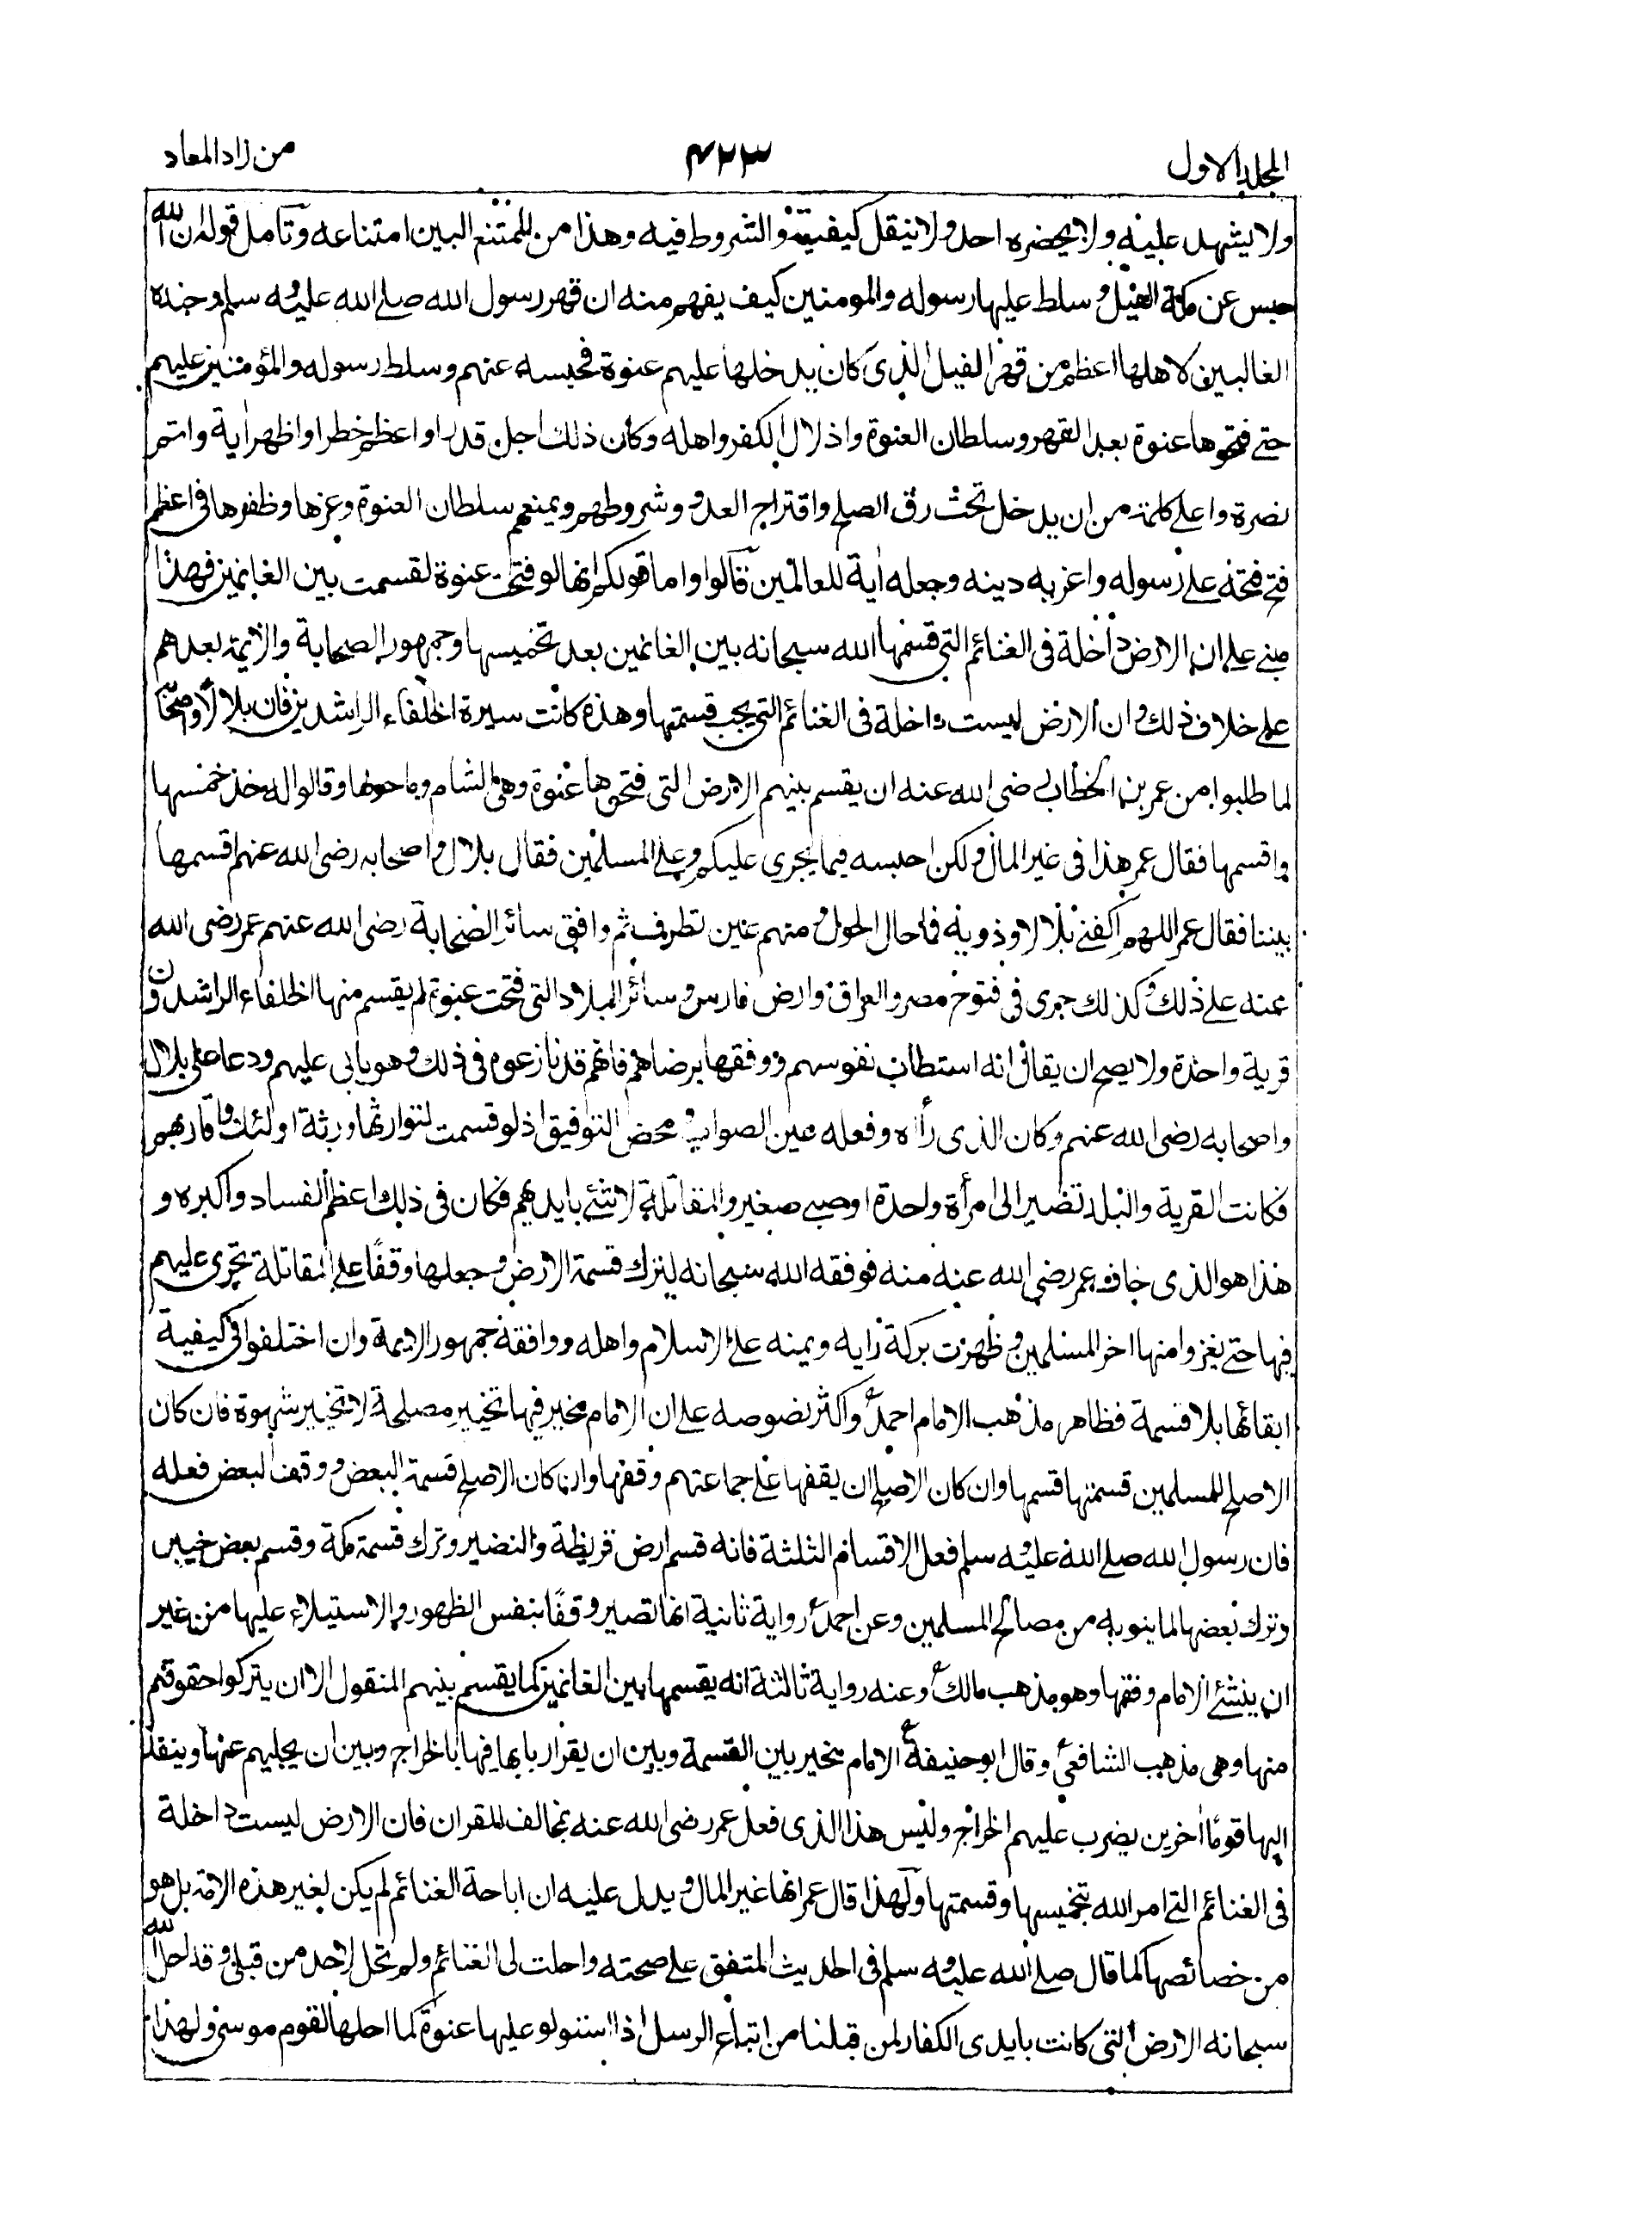 المجلد الاول
۴۲۳
من زاد المعاد
ولا يشهد عليه ولا يحضره احد ولا ينقل كيفيته والشروط فيه وهذا من الممتنع البين امتناعه وتأمل قوله ان الله
حبس عن مكة الفيل وسلط عليها رسوله والمومنين كيف يفهم منه ان قهر رسول الله صلى الله عليه وسلم وجنده
الغالبين لاهلها اعظم من قهر الفيل الذى كان يدخلها عليهم عنوة فحبسه عنهم وسلط رسوله والمؤمنين عليهم
حتى فتحوها عنوة بعد القهر وسلطان العنوة واذلال الكفر واهله وكان ذلك اجل قدرا واعظم خطرا واظهر اٰية واتم
نصرة واعلى كلمة من ان يدخل تحت رق الصلح واقتراح العدو وشروطهم ويمنعهم سلطان العنوة وعزها وظفرها فى اعظم
فتح فتحه على رسوله واعز به دينه وجعله اٰية للعالمين قالوا واما قولكم انها لو فتحت عنوة لقسمت بين الغانمين فهذا
مبنى على ان الارض داخلة فى الغنائم التى قسمها الله سبحانه بين الغانمين بعد تخميسها وجمهور الصحابة والايمة بعدهم
على خلاف ذلك وان الارض ليست داخلة فى الغنائم التى يجب قسمتها وهذه كانت سيرة الخلفاء الراشدين فان بلالا واصحابه
لما طلبوا من عمر بن الخطاب رضى الله عنه ان يقسم بينهم الارض التى فتحوها عنوة وهى الشام وما حولها وقالوا له خذ خمسها
واقسمها فقال عمر هذا فى غير المال ولكن احبسه فيما يجرى عليكم وعلى المسلمين فقال بلال واصحابه رضى الله عنهم اقسمها
بيننا فقال عمر اللهم اكفنى بلالا وذويه فما حال الحول ومنهم عين تطرف ثم وافق سائر الصحابة رضى الله عنهم عمر رضى الله
عنه على ذلك وكذلك جرى فى فتوح مصر والعراق وارض فارس وسائر البلاد التى فتحت عنوة لم يقسم منها الخلفاء الراشدون
قرية واحدة ولا يصح ان يقال انه استطاب نفوسهم ووقفها برضاهم فانهم قد نازعوه فى ذلك وهو يابى عليهم ودعا على بلال
واصحابه رضى الله عنهم وكان الذى رأاه وفعله عين الصواب ومحض التوفيق اذ لو قسمت لتوارثها ورثة اولئك واقاربهم
فكانت القرية والبلد تصير الى امرأة واحدة او صبى صغير والمقاتلة لا شئ بايديهم فكان فى ذلك اعظم الفساد واكبره و
هذا هو الذى خاف عمر رضى الله عنه منه فوفقه الله سبحانه لترك قسمة الارض وجعلها وقفًا على المقاتلة تجرى عليهم
فيها حتى يغزوا منها اخر المسلمين وظهرت بركة رايه ويمنه على الاسلام واهله ووافقه جمهور الايمة وان اختلفوا فى كيفية
ابقائها بلا قسمة فظاهر مذهب الامام احمدؒ واكثر نصوصه على ان الامام مخير فيها تخيير مصلحة لا تخيير شهوة فان كان
الاصلح للمسلمين قسمتها قسمها وان كان الاصلح ان يقفها على جماعتهم وقفها وان كان الاصلح قسمة البعض ووقف البعض فعله
فان رسول الله صلى الله عليه وسلم فعل الاقسام الثلثة فانه قسم ارض قريظة والنضير وترك قسمة مكة وقسم بعض خيبر
وترك بعضها لما ينوبه من مصالح المسلمين وعن احمدؒ رواية ثانية انها تصير وقفًا بنفس الظهور والاستيلاء عليها من غير
ان ينشئ الامام وقفها وهو مذهب مالكؒ وعنه رواية ثالثة انه يقسمها بين الغانمين كما يقسم بينهم المنقول الا ان يتركوا حقوقهم
منها وهى مذهب الشافعىؒ وقال ابو حنيفةؒ الامام مخير بين القسمة وبين ان يقر اربابها فيها بالخراج وبين ان يجليهم عنها وينفذ
اليها قومًا اٰخرين يضرب عليهم الخراج وليس هذا الذى فعل عمر رضى الله عنه بمخالف للقران فان الارض ليست داخلة
فى الغنائم التى امر الله بتخميسها وقسمتها ولهذا قال عمر انها غير المال ويدل عليه ان اباحة الغنائم لم يكن لغير هذه الامة بل هو
من خصائصها كما قال صلى الله عليه وسلم فى الحديث المتفق على صحته واحلت لى الغنائم ولم تحل لاحد من قبلى وقد احل الله
سبحانه الارض التى كانت بايدى الكفار لمن قبلنا من اتباع الرسل اذا استولو عليها عنوة كما احلها لقوم موسى ولهذا